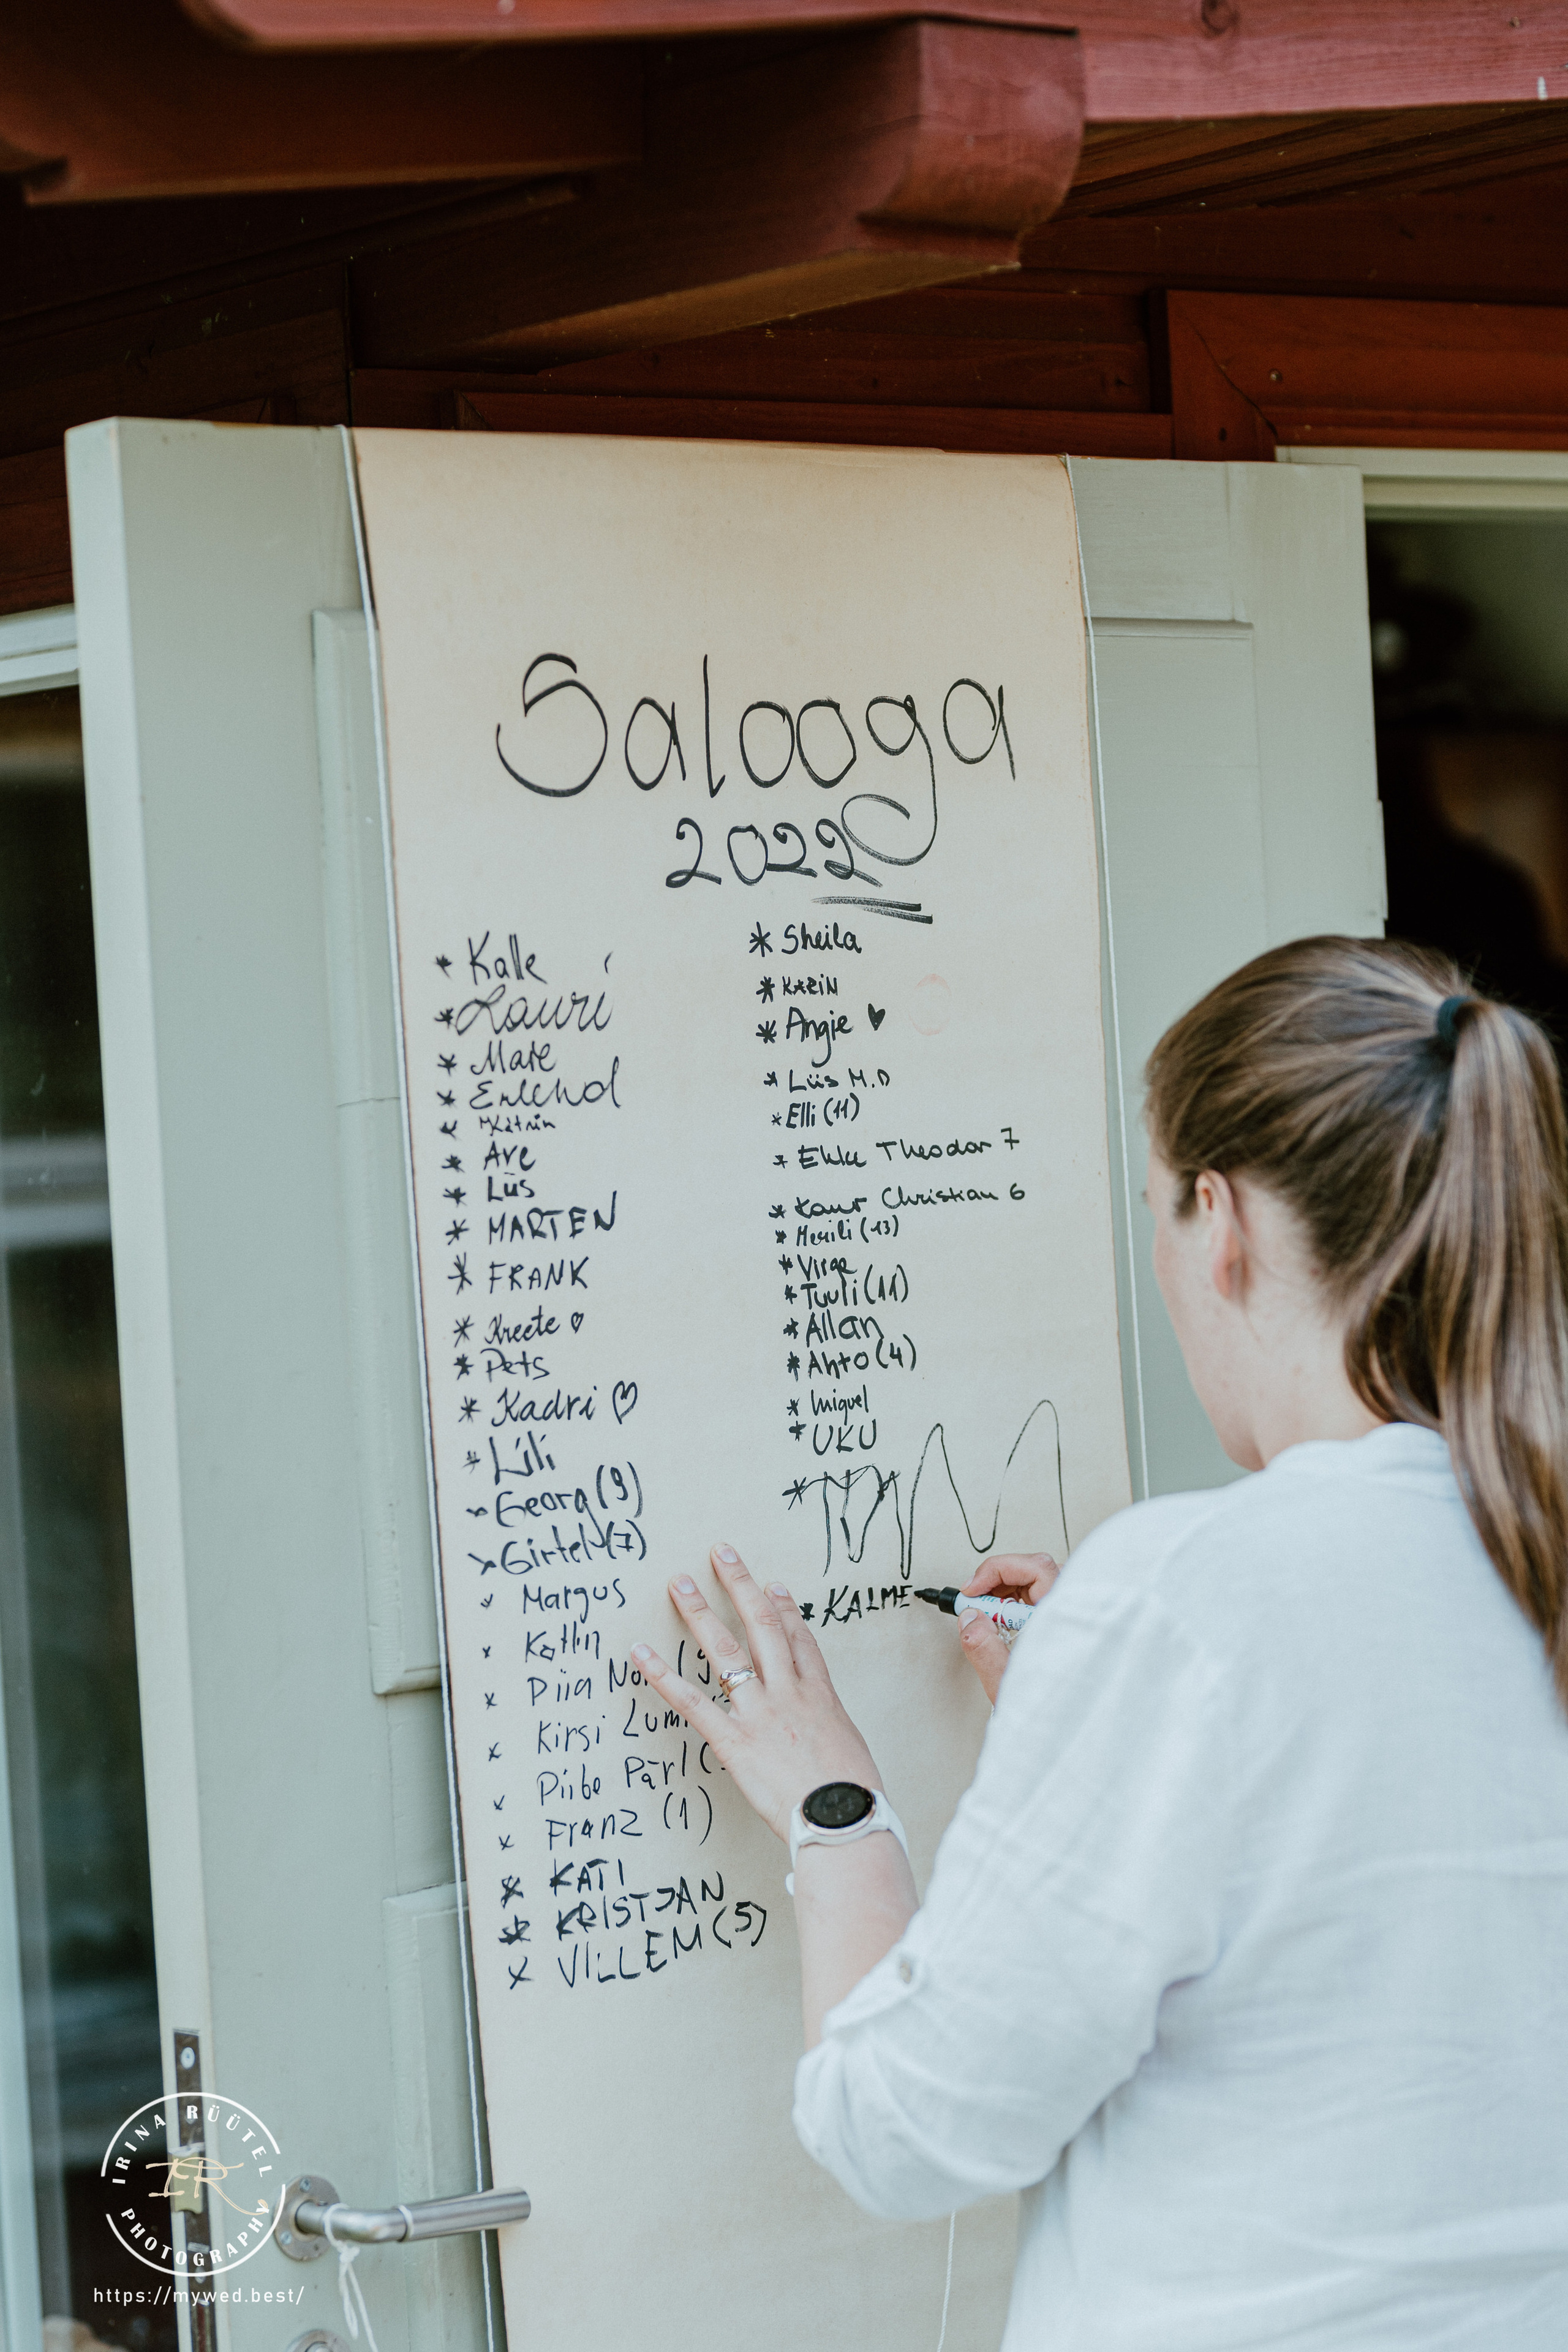 Salooga
2022
* Kalle
* Lauri
* Mare
* Erlend
* Katrin
* Ave
* Liis
* MARTEN
* FRANK
* Kreete ♡
* Pets
* Kadri ♡
* Lili
* Georg (9)
* Girtel (7)
* Margus
* Katlin
* Piia
* Kirsi
* Piibe Pärl (
* Franz (1)
* KATI
* KRISTJAN
* VILLEM (5)
* Sheila
* KARIN
* Angie ♥
* Liis M.D
* Elli (11)
* Theodor 7
* Kaur Christian 6
* Merili (13)
* Virge
* Tuuli (11)
* Allan
* Ahto (4)
* Miguel
* UKU
* KALME
IRINA RÜÜTEL
IR
PHOTOGRAPHY
https://mywed.best/